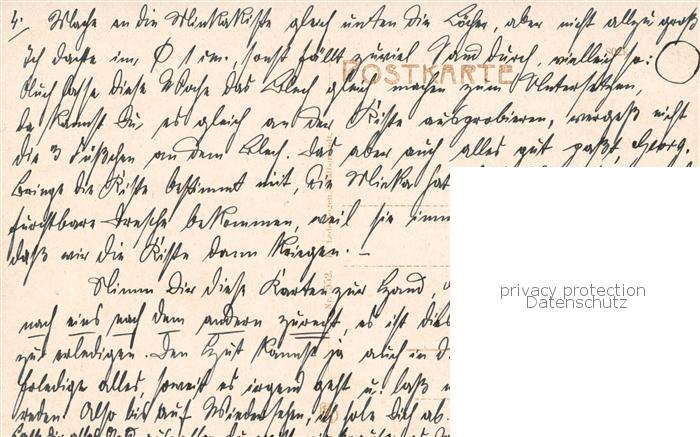 4.) Mache in die Minkakiste gleich unten die Löcher, aber nicht allzu groß
Ich dachte im, Ø 1 cm., sonst fällt zuviel Sand durch, vielleicht so:
POSTKARTE
Auch lasse diese Woche das Blech gleich machen zum Untersetzen,
da kannst Du es gleich an der Kiste ausprobieren, vergeß nicht
die 3 Füßchen an dem Blech. Das aber auch alles gut paßt, Georg.
Bringe die Kiste bestimmt mit, die Minka hat
furchtbare Dresche bekommen, weil sie imm
daß wir die Kiste dann kriegen. –
Nimm Dir diese Karten zur Hand,
nach eins nach dem andern zurecht, es ist dies
zu erledigen. Den Hut kannst ja auch in d.
Erledige alles, soweit es irgend geht u. laß
reden Also bis auf Wiedersehen, ich hole Dich ab.
privacy protection
Datenschutz